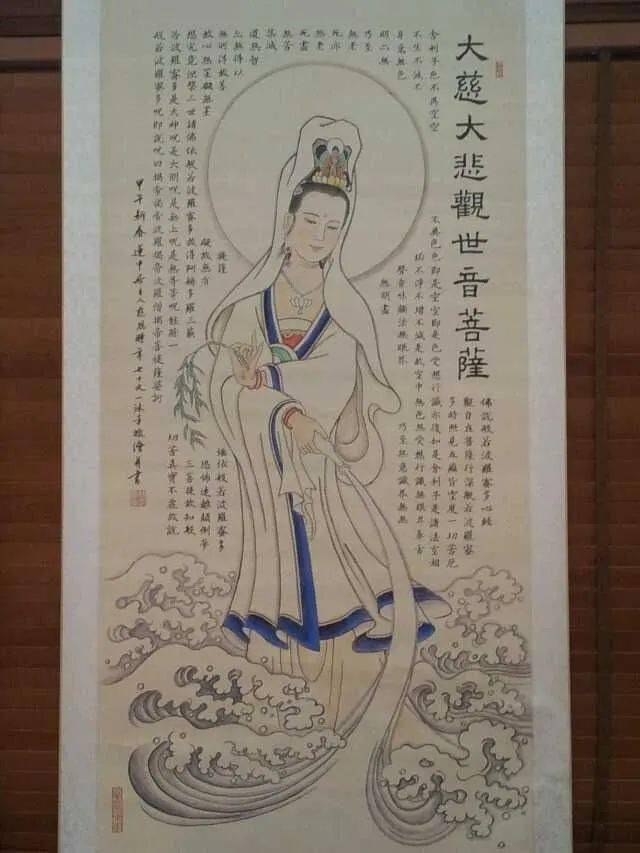 大慈大悲觀世音菩薩
佛說般若波羅蜜多心經
觀自在菩薩行深般若波羅蜜
多時照見五蘊皆空度一切苦厄
舍利子色不異空空
不異色色即是空空即是色受想行識亦復如是舍利子是諸法空相
不生不滅不
垢不淨不增不減是故空中無色無受想行識無眼耳鼻舌
身意無色
聲香味觸法無眼界
乃至無意識界無無
明亦無
無明盡
乃至
無老
死亦
無老
死盡
無苦
集滅
道無智
亦無得以
無所得故菩
提薩
埵依般若波羅蜜多
故心無罣礙無罣
礙故無有
恐怖遠離顛倒夢
想究竟涅槃三世諸佛依般若波羅蜜多故得阿耨多羅三藐
三菩提故知般
若波羅蜜多是大神咒是大明咒是無上咒是無等等咒能除一
切苦真實不虛故說
般若波羅蜜多咒即說咒曰揭帝揭帝波羅揭帝波羅僧揭帝菩提薩婆訶
甲午新春蓮中人時年七十又一沐手敬繪并書